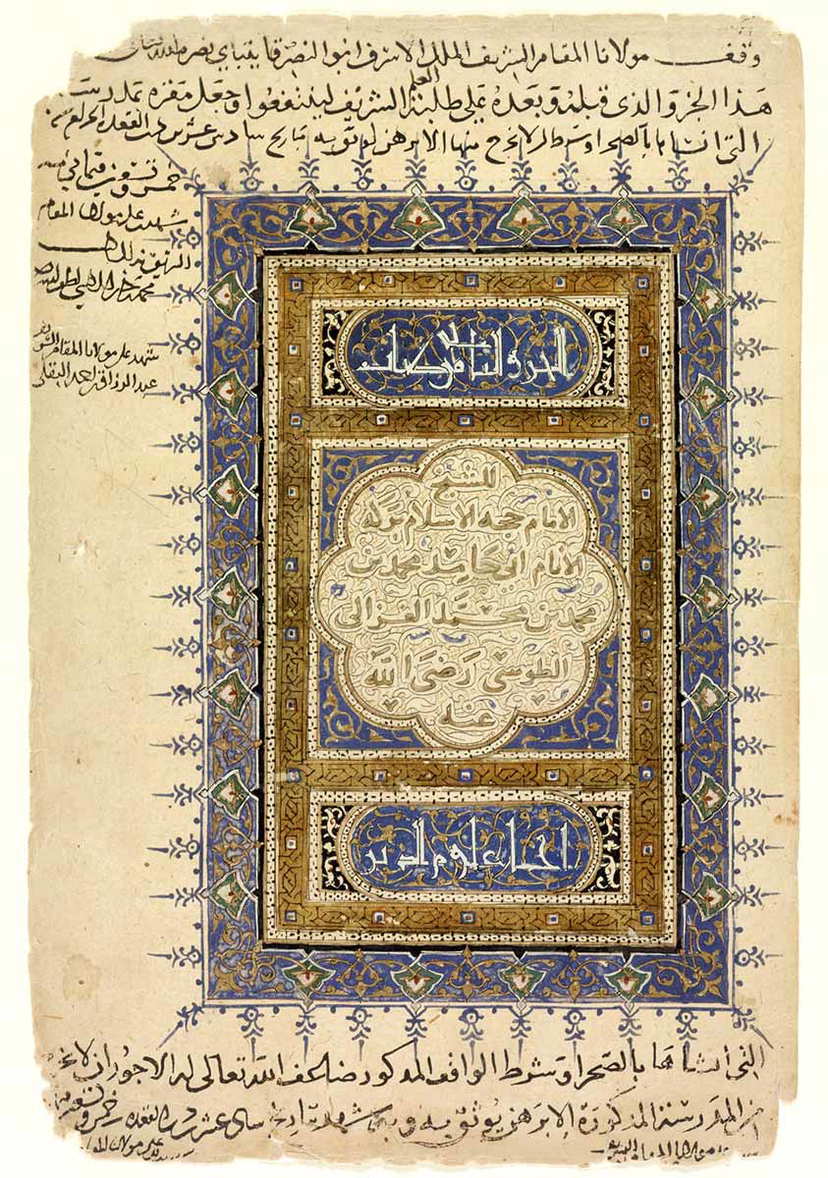 وقف مولانا المقام الشريف الملك الاشرف ابوالنصر قايتباي نصره الله
هذا الجزو الذى قبله وبعده على طلبة العلم الشريف لينتفعوا به وجعل مقره بمدرسته
التى انشاها بالصحرا وشرط ان لا يخرج منها الا برهن يوثق به بتاريخ سادس عشر ذى القعدة الحرام
خمس وتسعين
شهد على مولانا المقام
الشريف بذلك
محمد
شهد على مولانا المقام الشريف
عبد الرزاق احمد البقلى
الجزء الثانى من كتاب
للشيخ
الامام حجه الاسلام بركه
الانام ابى حامد محمد بن
محمد بن محمد الغزالى
الطوسى رضى الله
عنه
احيا علوم الدين
التى انشاها بالصحرا وشرط الواقف المذكور ضاعف الله تعالى له الاجور ان لا يخرج
من المدرسة المذكورة الا برهن يوثق به وبه شهد بتاريخ سادس عشر ذى القعدة خمس وتسعين
على مولانا المقام